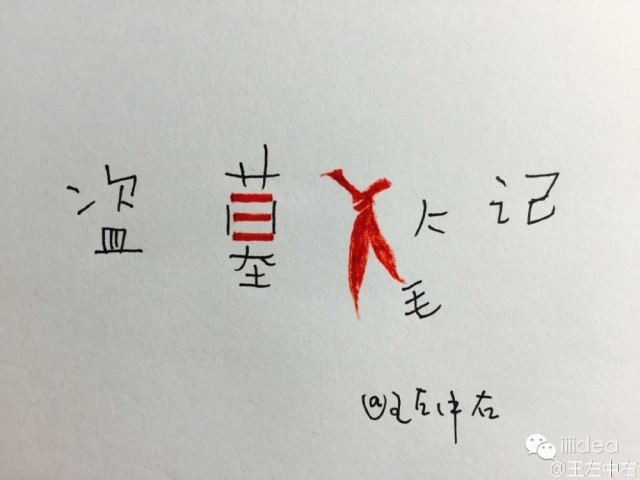 盗墓笔记
@王左中右
iiiidea
@王左中右